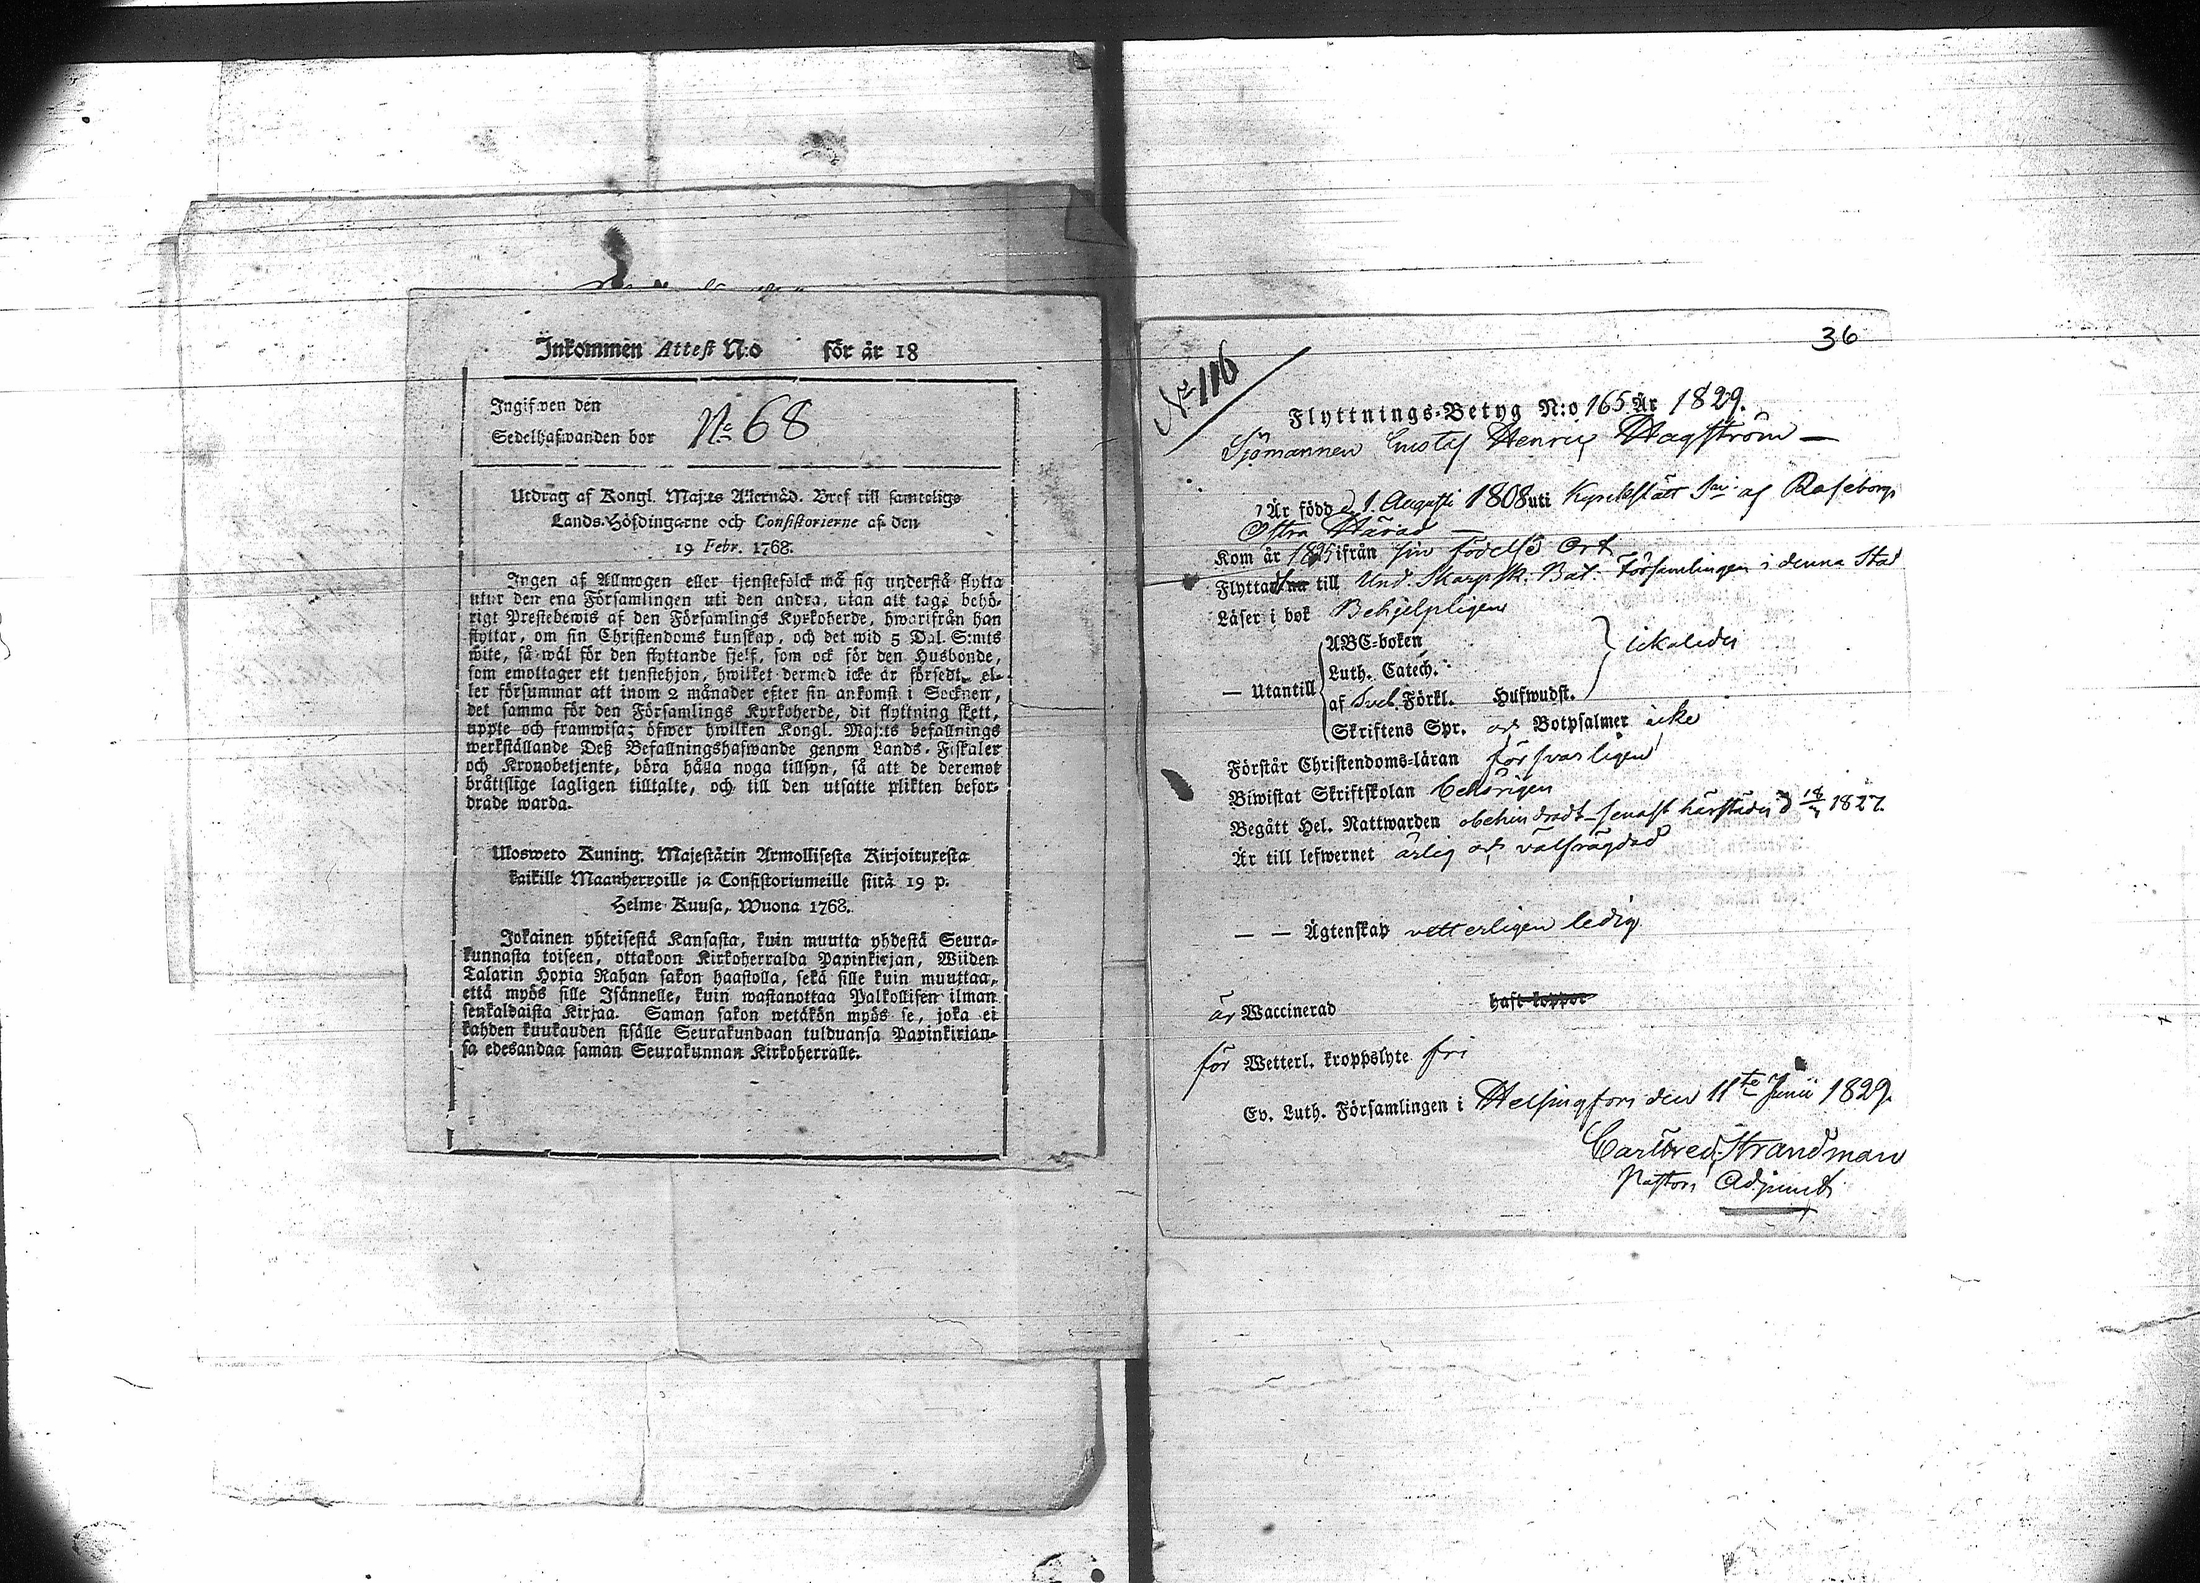 Inkommen Attest N:o för år 18
Ingifwen den
Sedelhafwanden bor
No 68
Utdrag af Kongl. Maj:ts Allernåd. Bref till samtelige
Lands-Höfdingarne och Consistorierne af den
19 Febr. 1768.
Ingen af Allmogen eller tjenstefolck må sig understå flytta
utur den ena Församlingen uti den andra, utan att taga behö-
rigt Prestebewis af den Församlings Kyrkoherde, hwarifrån han
flyttar, om sin Christendoms kunskap, och det wid 5 Dal. S:mts
wite, så wäl för den flyttande sjelf, som ock för den Husbonde,
som emottager ett tjenstehjon, hwilket dermed icke är försedt, el-
ler försummar att inom 2 månader efter sin ankomst i Socknen,
det samma för den Församlings Kyrkoherde, dit flyttning skett,
uppte och framwisa; öfwer hwilken Kongl. Maj:ts befallnings
werkställande Deß Befallningshafwande genom Lands-Fiskaler
och Kronobetjente, böra hålla noga tillsyn, så att de deremot
bråttslige lagligen tilltalte, och till den utsatte plikten befor-
drade warda.
Uloswero Kuning. Majestätin Armollisesta Kirjoituxesta
kaikille Maanherroille ja Consistoriumeille siitä 19 p.
Helme-Kuusa, Wuona 1768.
Jokainen yhteisestä Kansasta, kuin muutta yhdestä Seura-
kunnasta toiseen, ottakoon Kirkoherralda Papinkirjan, Wiiden
Talarin Hopia Rahan sakon haastolla, sekä sille kuin muuttaa,
että myös sille Isännelle, kuin wastanottaa Palkollisen ilman
senkaldaista Kirjaa. Saman sakon wetäkön myös se, joka ei
kahden kuukauden sisälle Seurakundaan tulduansa Papinkirjan-
sa edesandaa saman Seurakunnan Kirkoherralle.
36
No 116
Flyttnings-Betyg N:o 165 År 1829.
Sjömannen Gustaf Henric Hagström —
Är född d 1 Augusti 1808 uti Kyrckslätt Sn af Raseborgs
Östra Härad —
Kom år 1825 ifrån sin födelse Ort
Flyttar till Und. Skarpsk. Bat. Församlingen i denna Stad
Läser i bok Behjelpligen
ABC-boken
Luth. Catech.
— Utantill
af Sveb. Förkl. Hufwudst.
Skriftens Spr. och Botpsalmer icke
Förstår Christendoms-läran försvarligen
Biwistat Skriftskolan behörigen
Begått Hel. Nattwarden obehindradt senast härstädes d 1827.
Är till lefwernet ärlig och välfrägdad
— — Ägtenskap vetterligen ledig
är Waccinerad haft koppor
för Wetterl. kroppslyte fri
Ev. Luth. Församlingen i Helsingfors den 11te Junii 1829.
Strandman
Pastors Adjunct